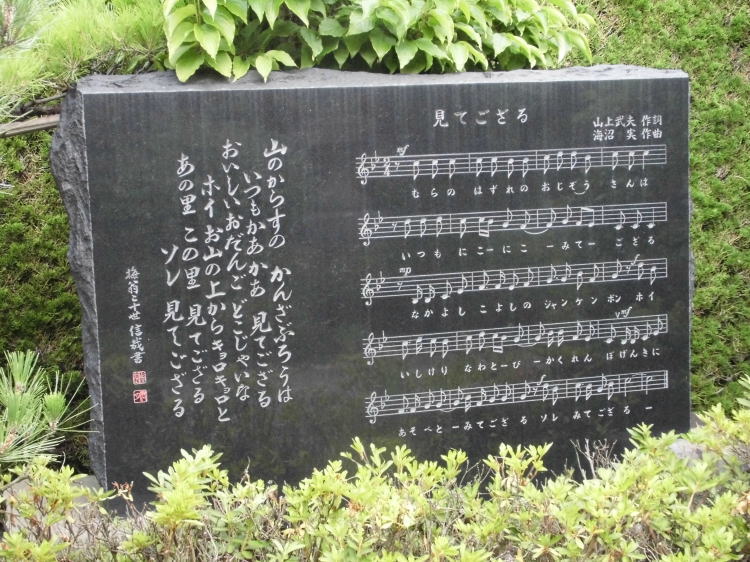 見てござる
山上武夫 作詞
海沼 実 作曲
mf
むらの はずれの おじぞう さんは
いつも にこーにこ ーみてー ござる
mp
なかよし こよしの ジャンケン ポン ホイ
mf
いしけり なわとーび ーかくれん ぼげんきに
あそべとーみてござる ソレ みてござるー
山のからすの かんざぶろうは
いつもかあかあ 見てござる
おいしいおだんご どこじゃいな
ホイ お山の上からキョロキョロと
あの里 この里 見てござる
ソレ 見てござる